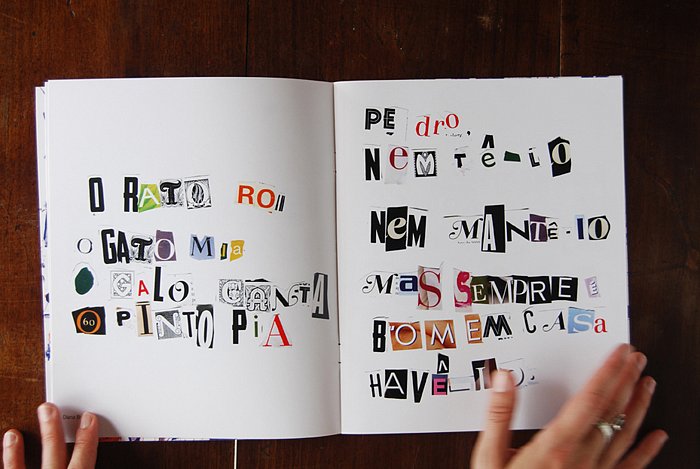 O RATO ROI
O GATO MIa
O GALO CANTA
O PINTO PiA
PEdro,
NeM TÊ-LO
NeM MANTÊ-lO
MaS SEMPRE É
BOM EM CASa
HAVÊ-LO.
Diana